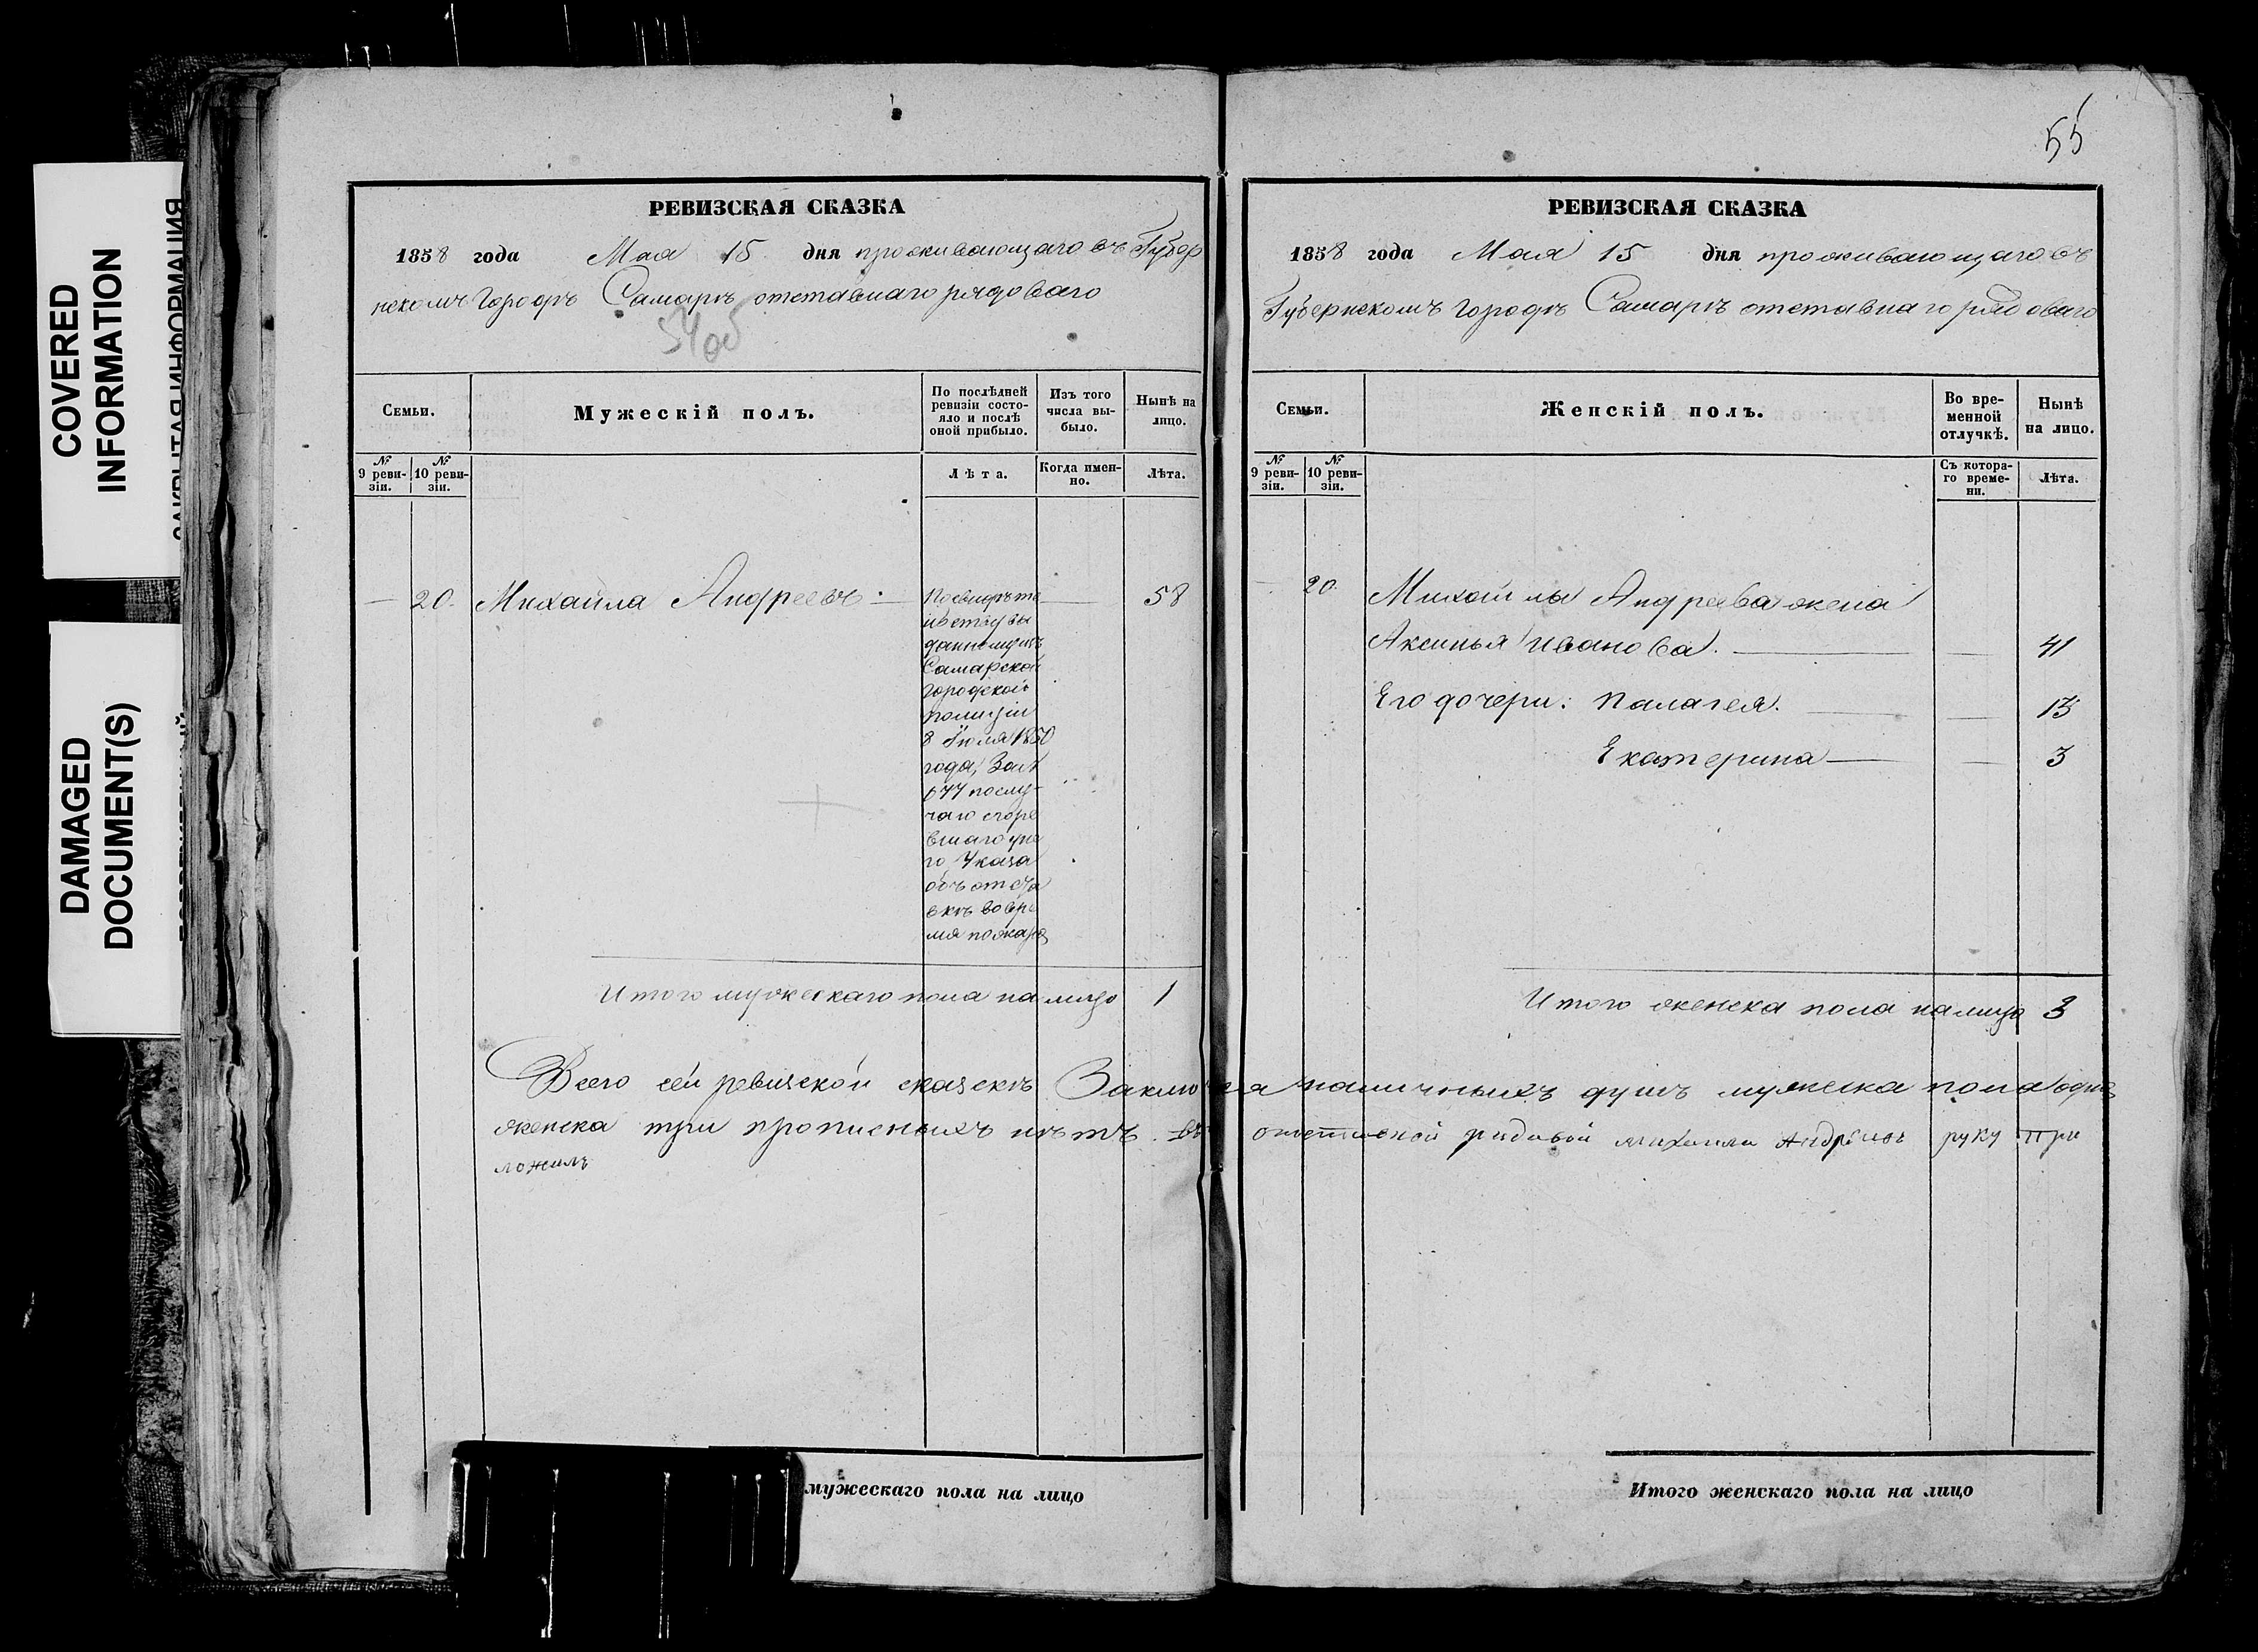 COVERED
INFORMATION
DAMAGED
DOCUMENT(S)
РЕВИЗСКАЯ СКАЗКА
1858 года Мая 15 дня проживающаго въ Губер
нскомъ Городѣ Самарѣ отставнаго рядоваго
54об
Семьи.
Мужескій полъ.
По послѣдней
ревизіи состо-
яло и послѣ
оной прибыло.
Изъ того
числа вы-
было.
Нынѣ на
лицо.
№
9 реви-
зіи.
№
10 реви-
зіи.
Лѣта.
Когда имен-
но.
Лѣта.
— 20. Михайла Андреевъ — 58
По свидѣте
льству вы
данному изъ
Самарской
Городской
полиціи
8 Іюля 1850
года, За №
677 по слу-
чаю сгоре
вшаго у не
го Указа
объ отста
вкѣ во вре
мя пожара
Итого мужескаго пола на лицо 1
55
РЕВИЗСКАЯ СКАЗКА
1858 года Мая 15 дня проживающаго въ
Губернскомъ городѣ Самарѣ отставнаго рядоваго
Семьи.
Женскій полъ.
Во вре-
менной
отлучкѣ.
Нынѣ
на лицо.
№
9 реви-
зіи.
№
10 реви-
зіи.
Съ котора-
го време-
ни.
Лѣта.
20. Михайлы Андреева жена
Аксинья Иванова. — — 41
Его дочери: Палагея. — — 13
Екатерина — — 3
Итого женска пола на лицо 3
Всего сей ревизской сказкѣ наличныхъ душъ мужеска пола одна
женска три прописныхъ нѣтъ. отставной рядовой михаила Андреевъ руку при
ложилъ
мужескаго пола на лицо
Итого женскаго пола на лицо